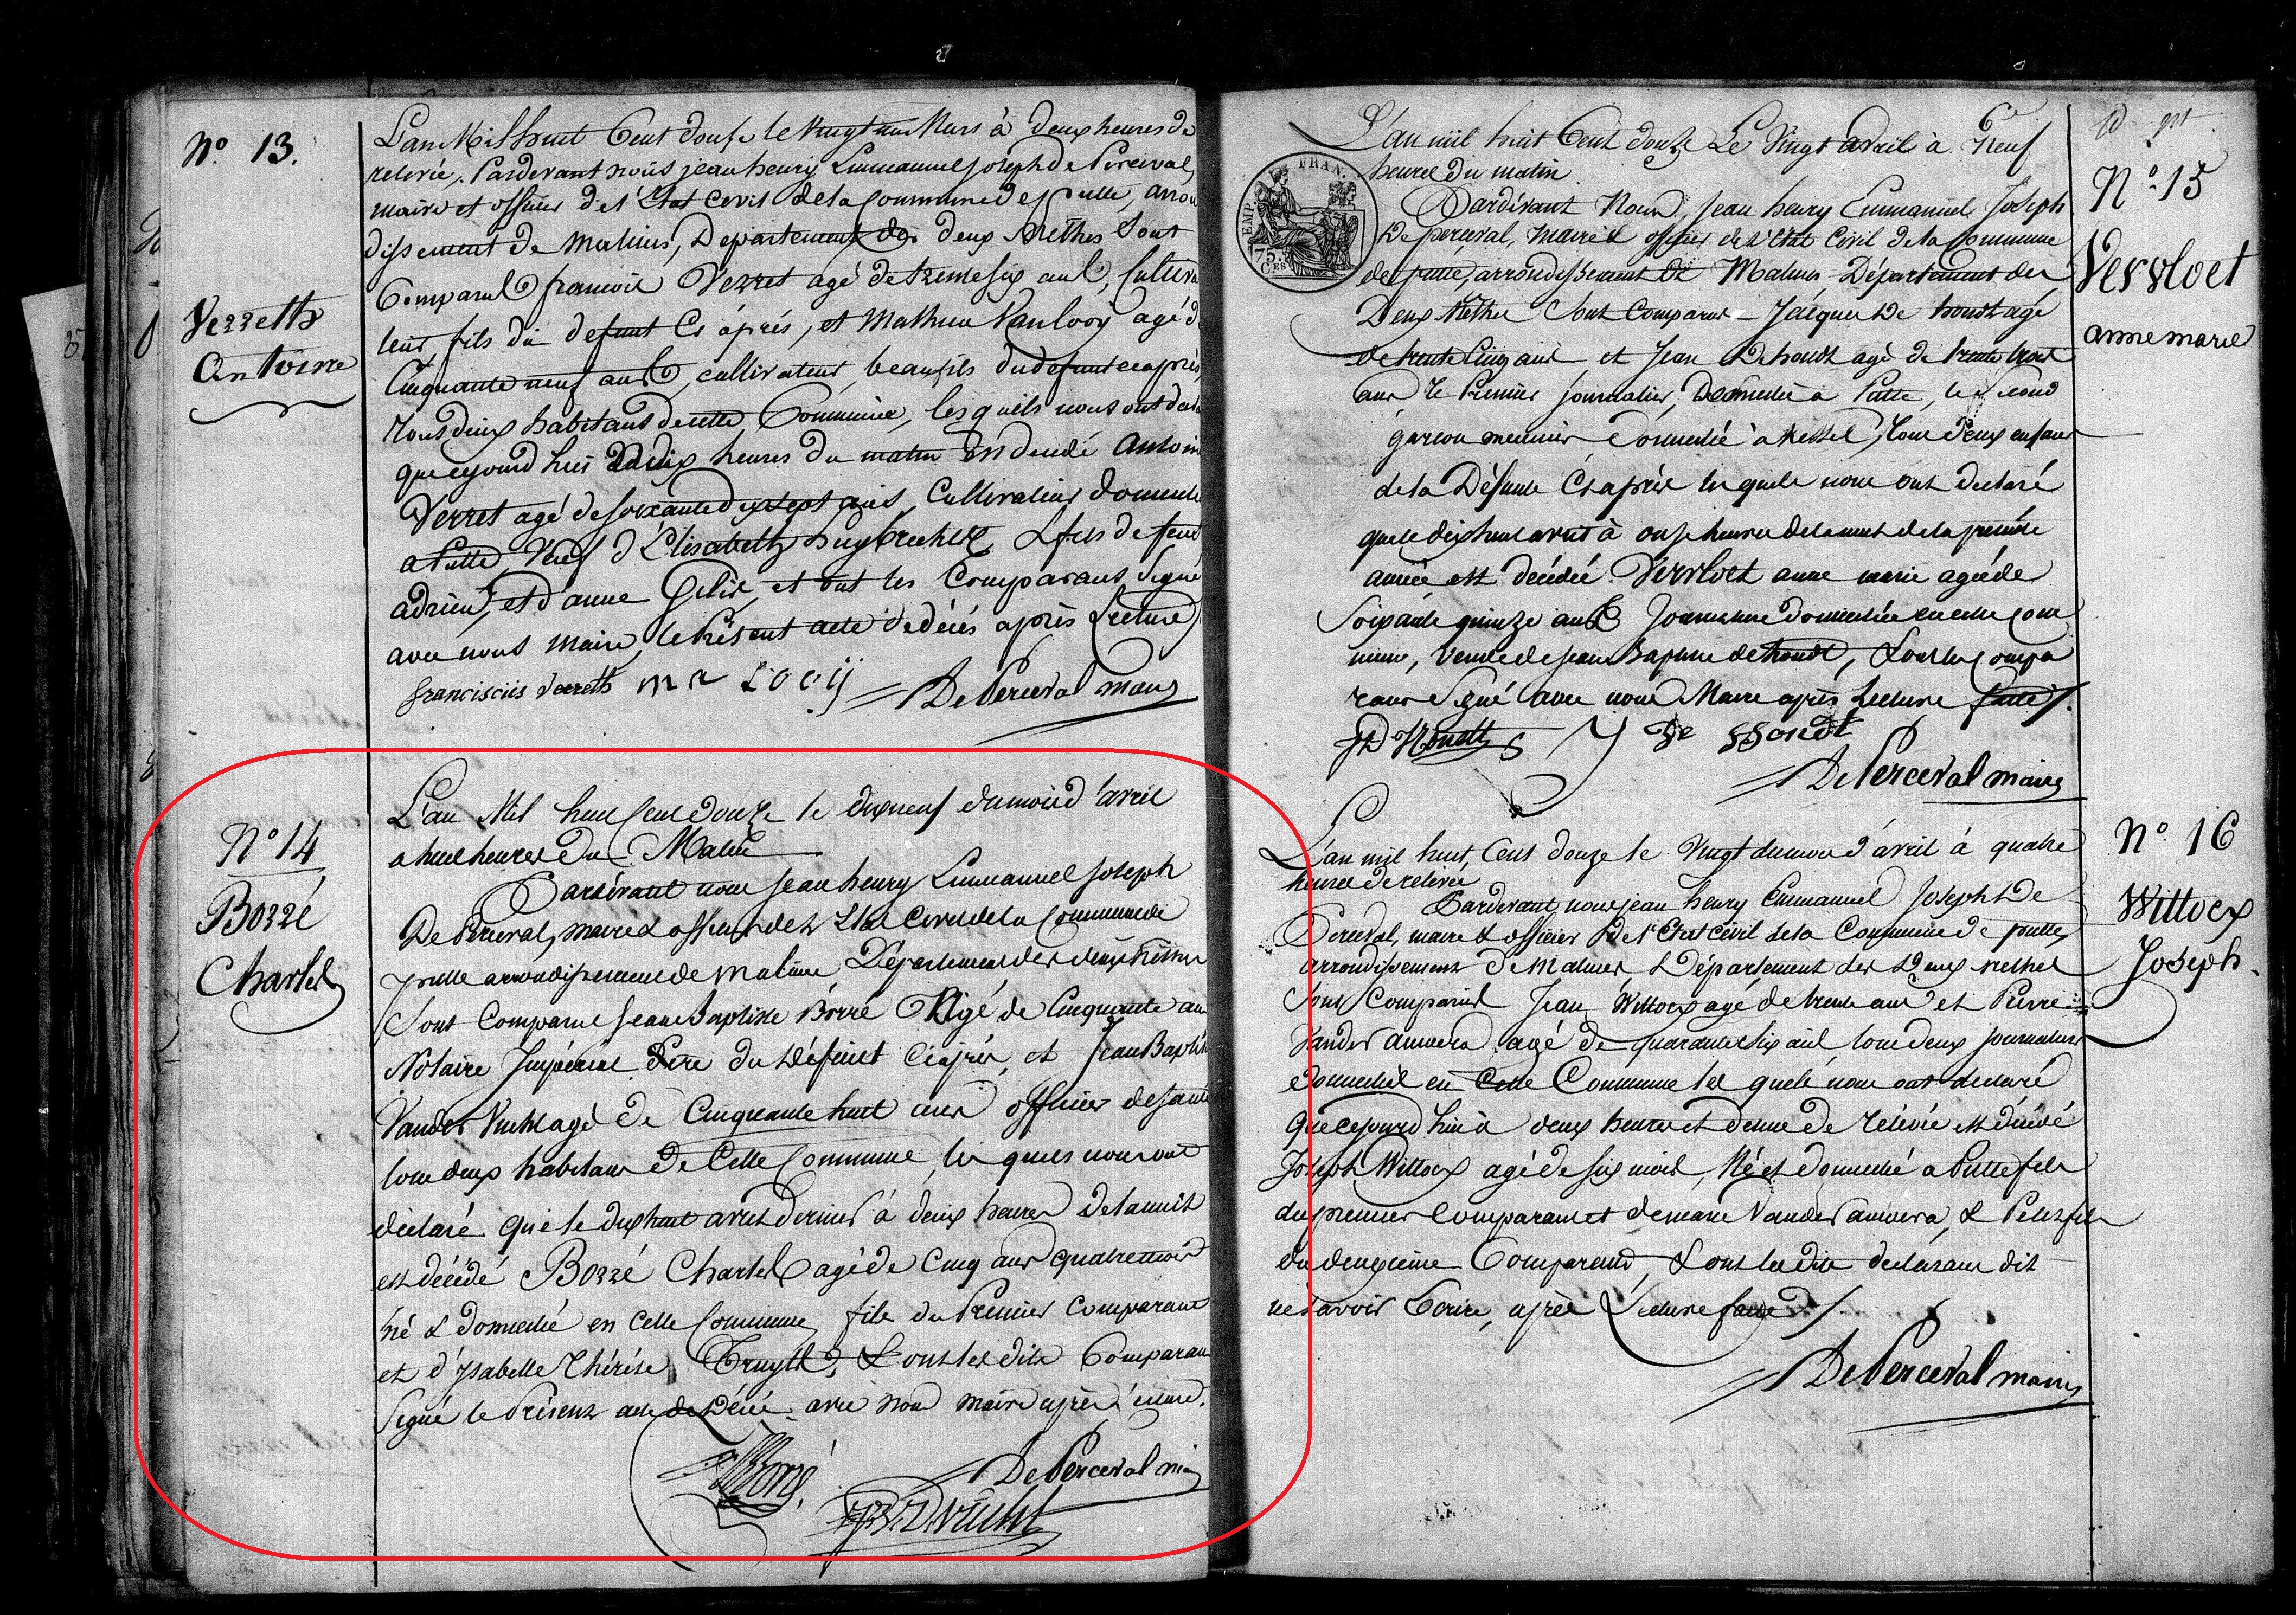 N° 13.
Verreth
Antoine
L'an Mil huit Cent douse le vingt un Mars à deux heures de
relevée. Pardevant nous jean henry Emmanuel joseph de Perceval,
maire et officier de l'État Civil de la Commune de putte, arron
dissement de Malines, Departement des deux Nethes Sont
Comparus françois Verret agé de trente six ans, Cultiva
teur fils du defunt Ci après, et Mathieu Van looy agé de
Cinquante neuf ans, cultivateur, beaufils du defunt ci après,
tous deux habitans de cette Commune, les quels nous ont declaré
que cejourd hui à dix heures du matin est decedé Antoine
Verret agé de soixante dix sept ans, Cultivateur domicilié
a Putte, Veuf d'Elisabeth huybrechts & fils de feu
adrien, et d'anne Gilis, et ont les Comparans Signé
avec nous maire, le Présent acte de décès après Lecture
franciscus verreth m v Looij DePerceval maire
N° 14
Borré
Charles
L'an Mil huit Cent douze le dix neuf du mois d'avril
a huit heures du Matin
Pardevant nous Jean henry Emmanuel Joseph
De Perceval, maire & officier de l'Etat Civil de la Commune de
putte arrondissement de malines Département des deux Nethes
Sont Comparus Jean Baptiste Borré Agé de Cinquante ans
Notaire Impérial Père du Défunt Ciaprès, et Jean Baptiste
Vander Vucht agé de Cinquante huit ans officier de santé
tous deux habitans de Cette Commune, les quels nous ont
déclaré que le dix huit avril dernier à deux heures de la nuit
est décédé Borré Charles agé de Cinq ans quatre mois
né & domicilié en Cette Commune fils du Premier Comparant
et d'Isabelle Thérèse Truyts, & ont les dits Comparans
Signé le Présent acte de Décès avec nous maire après lecture.
Borré DePerceval maire
JB V Vucht
EMP. FRAN.
75.
CES
N° 15
Vervloet
anne marie
L'an mil huit Cent douze Le Vingt avril à Neuf
heures du matin
Pardévant Nous, Jean henry Emmanuel Joseph
De perceval, Maire & officier de l'Etat Civil de la Commune
de putte, arrondissement de Malines, Département des
Deux Nethes Sont Comparus Jacques De hondt agé
de trente Cinq ans et Jean Dehondt agé de trente trois
ans le Premier journalier, Domicilié a Putte, le second
garçon meunier domicilié a Kessel, tous deux enfans
de la Défunte Ciaprès les quels nous ont declaré
que le dix huit avril à onse heures de la nuit de la présente
année est decédée Vervloet anne marie agée de
Soixante quinze ans Journaliere domiciliée en cette Com
mune, Veuve de Jean Baptiste dehondt, & ont les Compa
rans Signé avec nous Maire après Lecture faite.
JD Hondt J De Hondt
DePerceval maire
N° 16
Wittocx
Joseph.
L'an mil huit Cent douze le Vingt du mois d'avril à quatre
heures de relevée
Pardevant nous jean henry Emmanuel Joseph De
Perceval, maire & officier de l'Etat Civil de la Commune de putte,
arrondissement de Malines Département des Deux nethes
Sont Comparus Jean Wittocx agé de trente ans et Pierre
Vander auwera agé de quarante six ans tous deux journaliers
domiciliés en Cette Commune les quels nous ont declaré
que cejourd hui à deux heures et demie de relévée est décédé
Joseph Wittocx agé de six mois, Né et domicilié a Putte fils
du premier comparant et de marie Vander auwera, & Petit fils
du deuxieme Comparant, & ont les dits declarans dit
ne savoir Ecrire, après Lecture faite
DePerceval maire